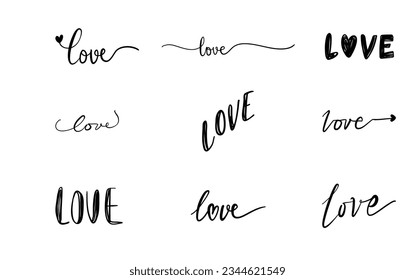 love love LOVE
love LOVE love
LOVE love love
shutterstock.com · 2344621549